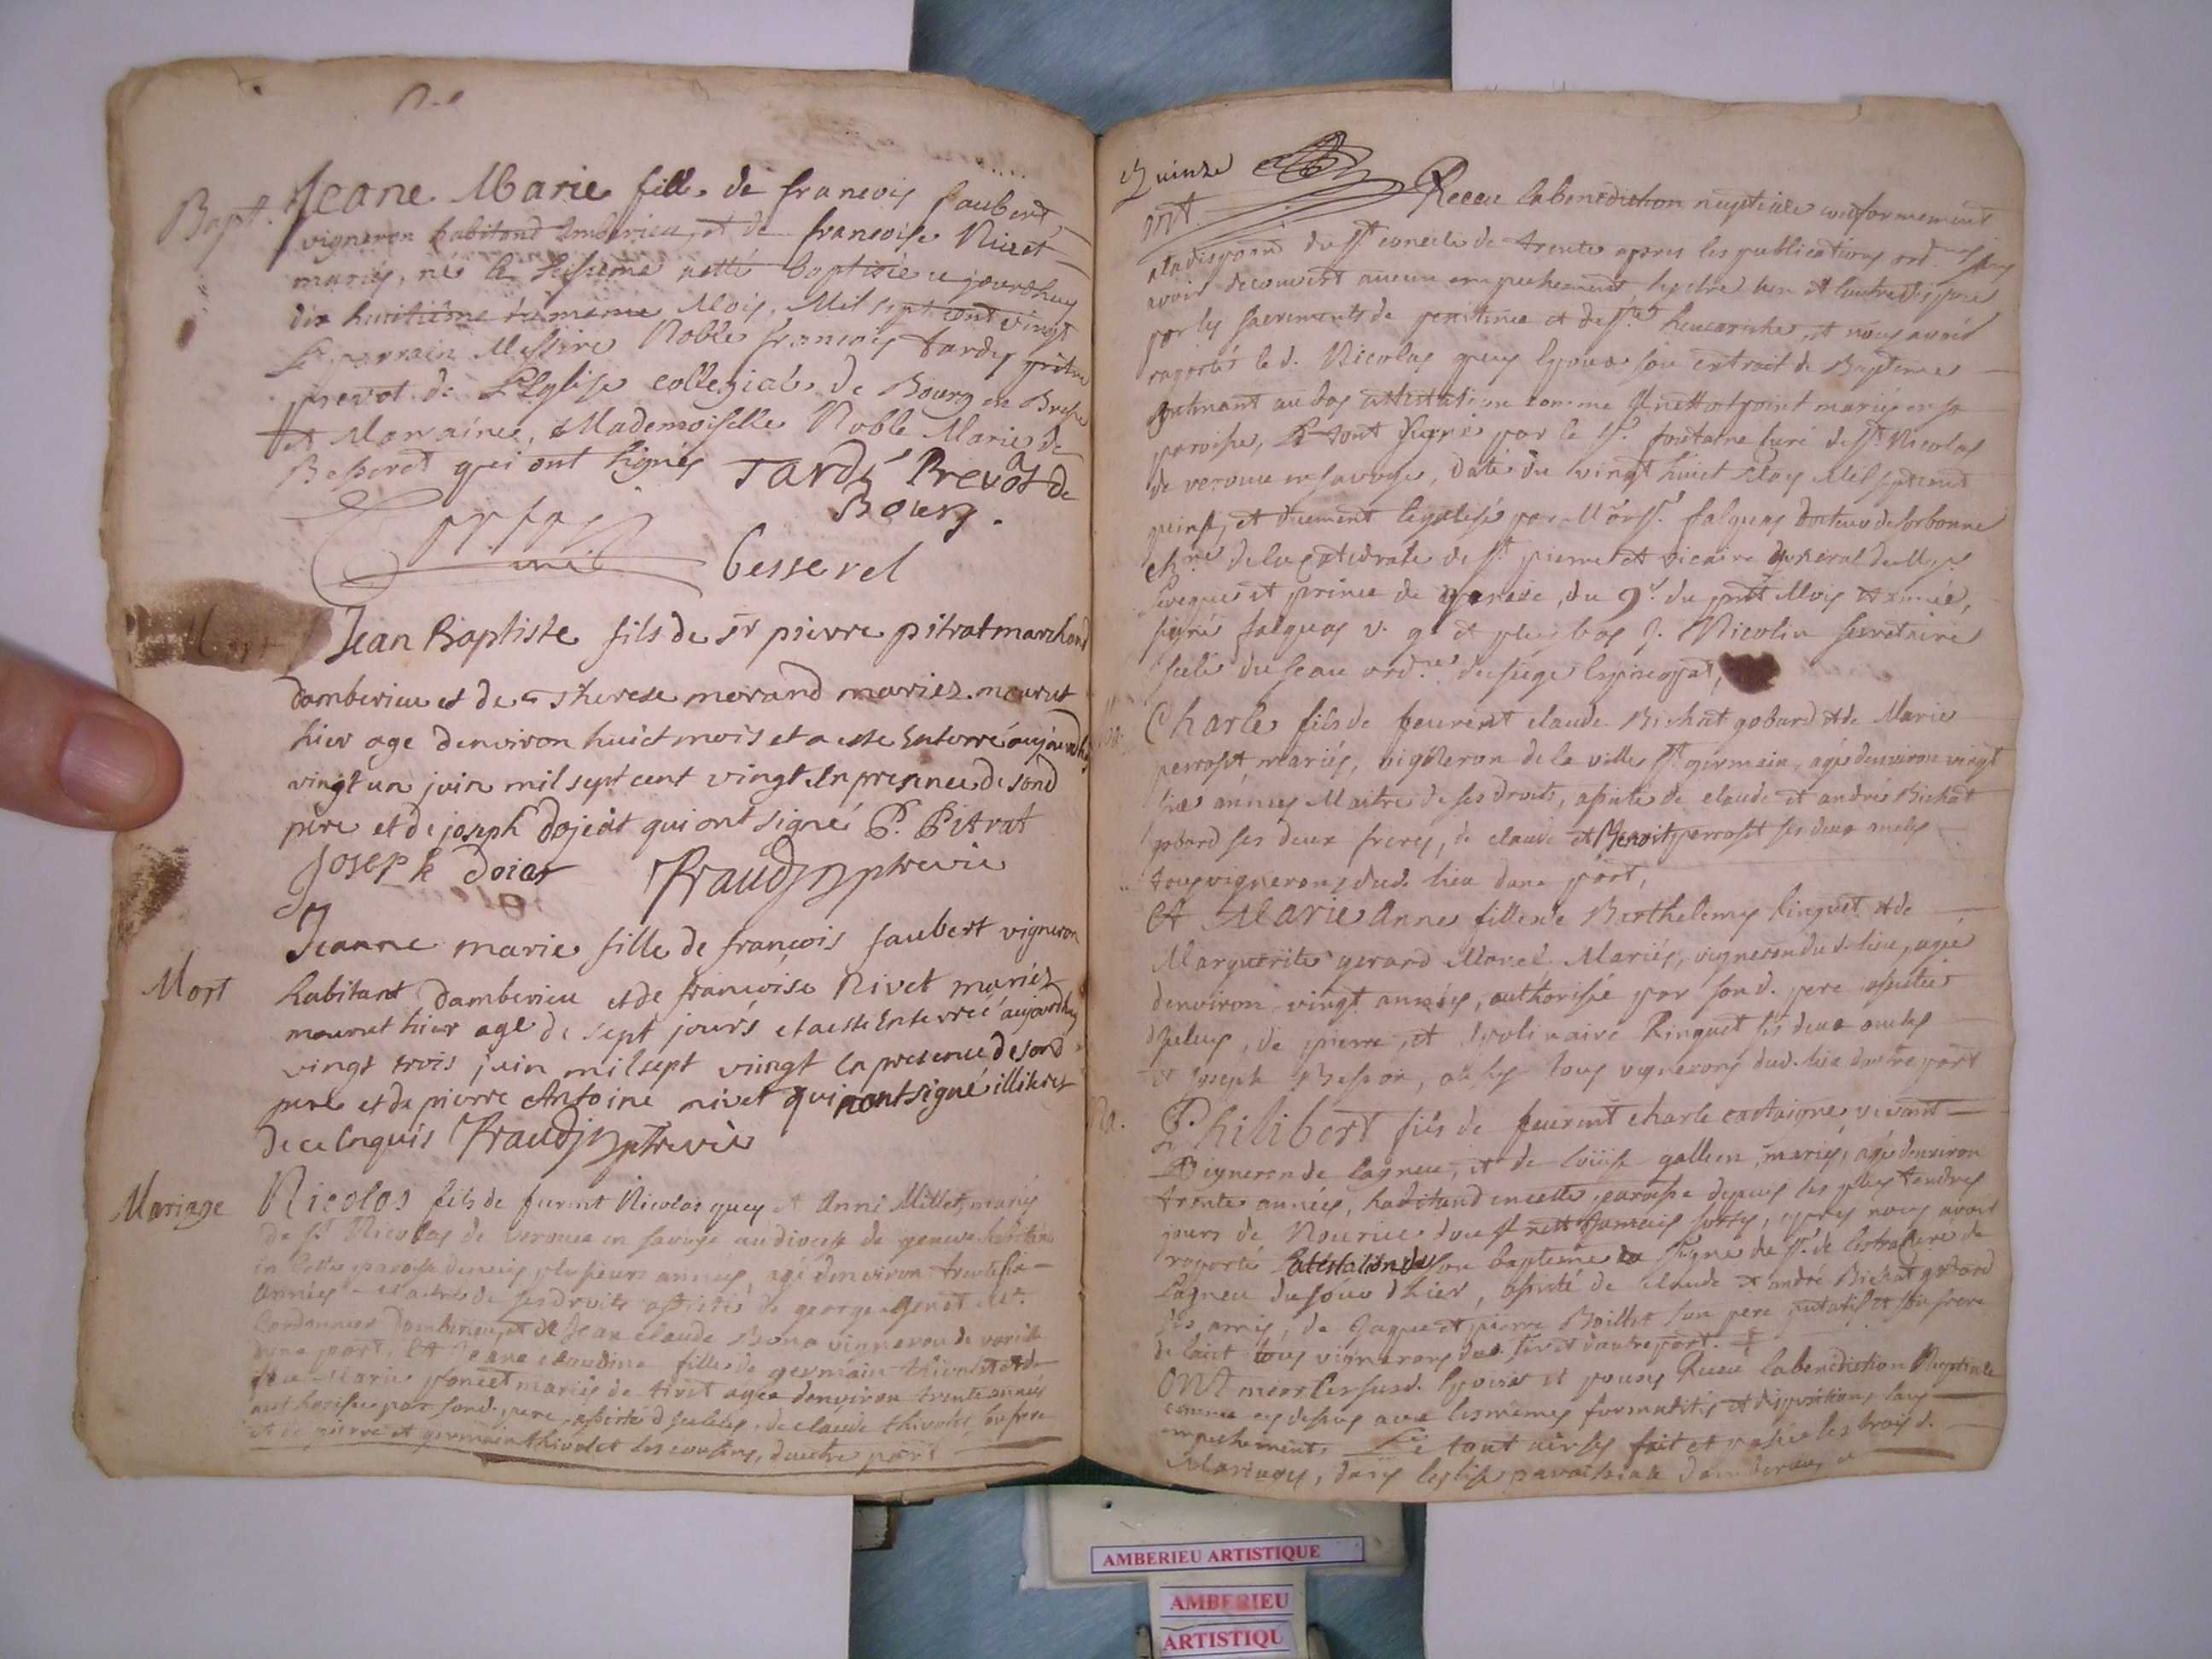 Bapt. Jeane Marie fille de francois Jaubert
vigneron habitand Amberieu, et de francoise Nivet
mariés, née le seisieme a etté baptisée ce jourdhuy
dix huitiême du même Mois, Mil sept cent vingt
Le parrain Messire Noble francois tardy prêtre
prevot de L'Eglise collegiale de Bourg en Bresse
et Marraine, Mademoiselle Noble Marie de
Besseret qui ont signés Tardÿ Prevôt de
Bourg.
Besserel
Mort Jean Baptiste fils de sr pierre pitrat marchand
damberieu et de therese morand mariez mourut
hier age denviron huict mois et a este Enterré aujourdhuy
vingt un juin mil sept cent vingt En presence de sond
pere et de joseph dojat qui ont signé P. Pitrat
Joseph doiat
Jeanne marie fille de françois Jaubert vigneron
Mort habitant damberieu et de françoise Nivet mariéz
mourut hier age de sept jours et a este Enterrée aujourdhuy
vingt trois juin mil sept vingt En presence de sond
pere et de pierre Antoine nivet qui nont signé illiterez
de ce Enquis
Mariage Nicolas fils de furent Nicolas quey et Anne Millet mariés
de st Nicolas de verouce en savoye au diocese de geneve habitand
en cette paroisse depuis plusieurs années, agé denviron trente six
années Maitre de ses droits assisté de george genet Me.
Cordonnier damberieu, et de Jean claude Bona vigneron de vareille
dune part, Et Jeane claudine fille de germain thivolet et de
Marie poncet mariés de tiret agée denviron trente années
authorisée par sond. pere, assisté diceluy, de claude thivolet, son frere
et de pierre et germain thivolet ses cousins, dautre part
Quinze
ont Receu la benediction nuptiale conformement
a la dispoon du st concile de trente apres les publications ordres sans
avoir decouvert aucun empechement sestre lun et lautre disposé
par les sacrements de penitence et de ste heucaristie, et nous avoir
raporté le d. Nicolas quey Epoux son extrait de Bapteme
contenant au dos attestation comme Il nettoit point marié en sa
paroisse, Le tout signé par le sr. fontaine Curé de st Nicolas
de verouce en savoye, daté du vingt huict May Mil sept cent
vingt, et duement legalisé par Morsr. falquas docteur de sorbonne
chne de la Catedrale de st pierre et vicaire general de Mgr
Leveque et prince de geneve, du 9e. du pnt Mois et année,
signé falquas v. g. et plus bas J. Nicolin secretaire
scelé du seau ordre du siege Episcopal,
Ma. Charle fils de feurent claude Bichat gobard et de Marie
perrosst mariés, vigneron de la ville st germain, agé denviron vingt
années Maitre de ses droits, assisté de claude et andré Bichat
gobard ses deux freres, de claude et Benoit perrosst ses deux oncles
tous vignerons dud. lieu dune part,
Et Marie Anne fille de Barthelemy Ringuet et de
Marguerite gerard Morel Mariés, vigneron dud. lieu, agée
denviron vingt années, authorisée par sond. pere assistée
dicelluy, de pierre et Apolinaire Ringuet ses deux oncles
et Joseph Besson, tous vignerons dud. lieu dautre part
Ma. Philibert fils de feurent charle castaigne vivant
Vigneron de Lagneu, et de Loüise gallien, mariés, agé denviron
trente années, habitand en cette paroisse depuis les plus tendres
jours de Nourice dou Il nest Jamais sorty, apres nous avoir
raporté Lattestation de son bapteme signé du sr. de Lestra Curé de
Lagneu du jour dhier, assisté de claude et andré Bichat gobard
ses amis, de Jaque et pierre Baillet son pere putatif et son frere
de laict tous vignerons de tiret dautre part. ‡
Ont encor les susd. Epoux et Epouses Receu la benediction Nuptiale
comme cy dessus avec les memes formalités et dispositions sans
empechement. Le tout ainsy fait et passé les trois d.
Mariages, dans leglise parroissiale damberieu, ce
AMBERIEU ARTISTIQUE
AMBERIEU
ARTISTIQU